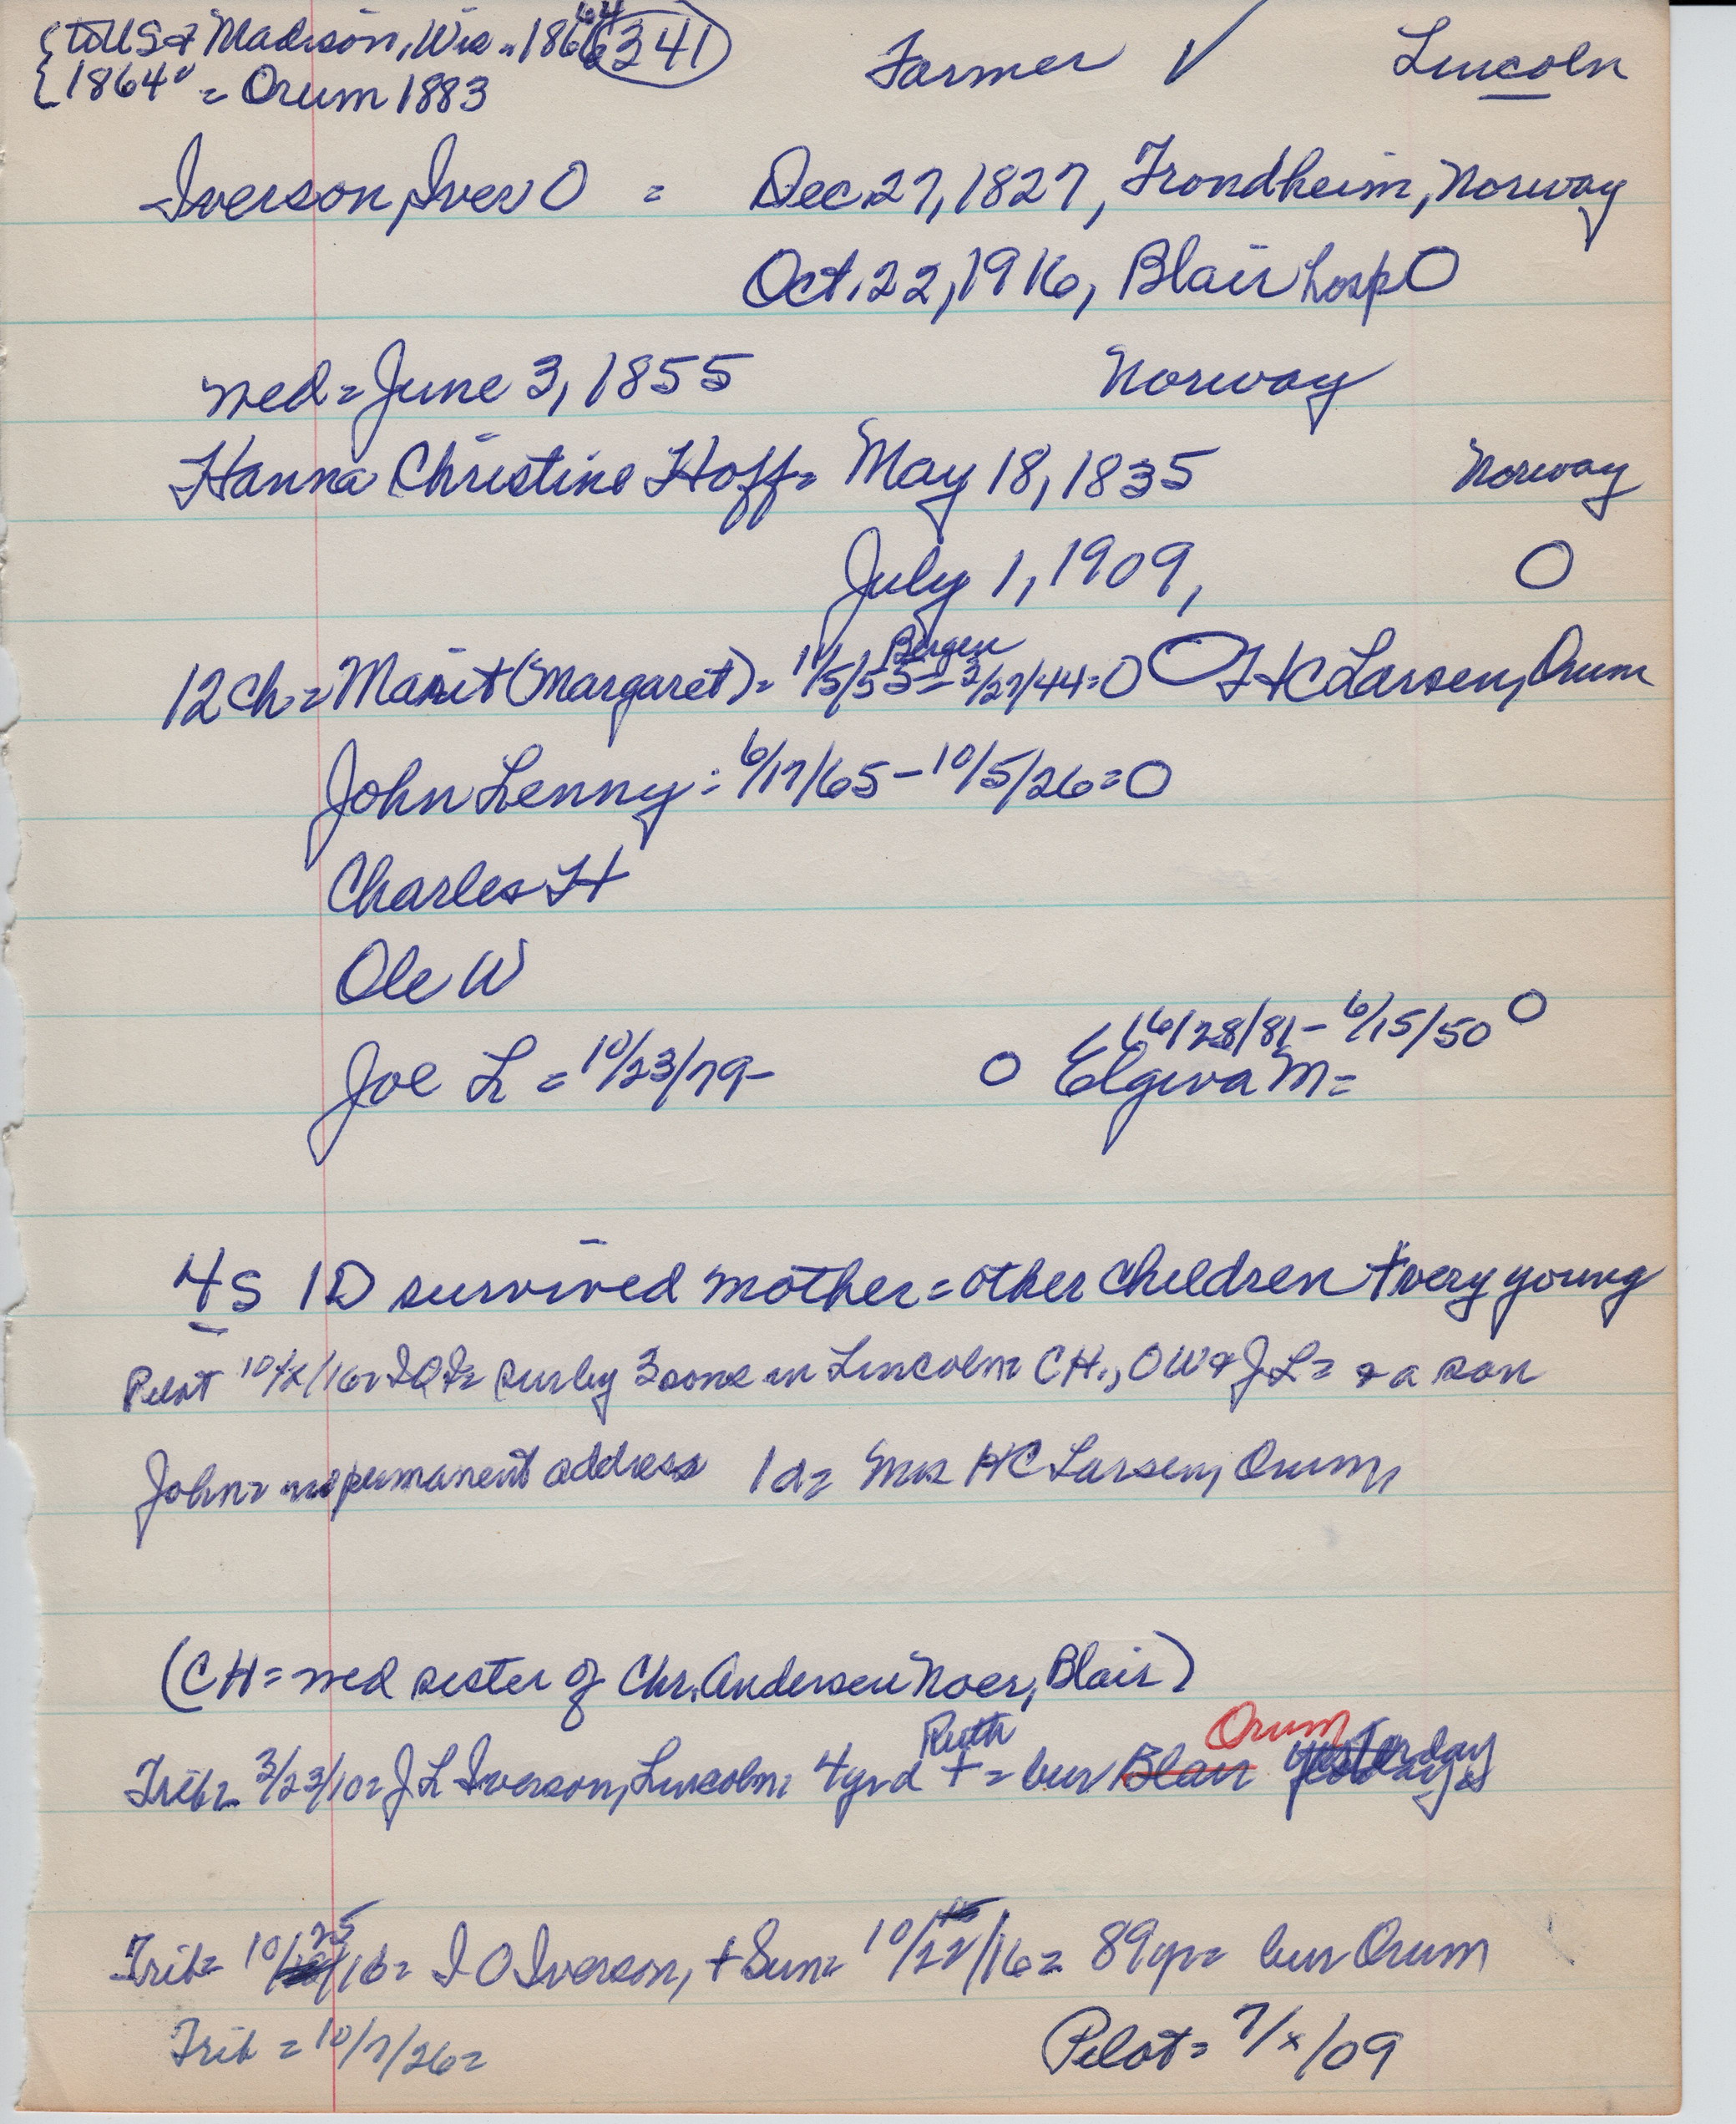 {to US & Madison, Wis = 1864 (341) Farmer ✓ Lincoln
{1864 = Orum 1883
Iverson, Iver O = Dec 27, 1827, Trondheim, Norway
Oct. 22, 1916, Blair hosp O
wed = June 3, 1855 Norway
Hanna Christine Hoff = May 18, 1835 Norway
July 1, 1909, O
Bergen
12 ch = Marit (Margaret) = 11/5/55 - 3/27/44 = O HC Larsen, Orum
John Lenny = 6/17/65 - 10/5/26 = O
Charles H
Ole W
6/28/81 - 6/15/50 O
Joe L = 10/23/79 - O Elgiva M =
4S 1D survived mother = other children + very young
Pilot 10/x/16 = IOI = sur by 3 sons in Lincoln = CH., OW & JL = & a son
John = no permanent address 1 d = Mrs HC Larsen, Orum,
(CH = wed sister of Chr. Andersen Noer, Blair)
Ruth Orum yesterday
Trib = 3/23/10 = J L Iverson, Lincoln = 4 yr d + = bur Blair
25
Trib = 10/ /16 = I O Iverson, + Sun = 10/22/16 = 89 yr = bur Orum
Trib = 10/7/26 = Pilot = 7/x/09